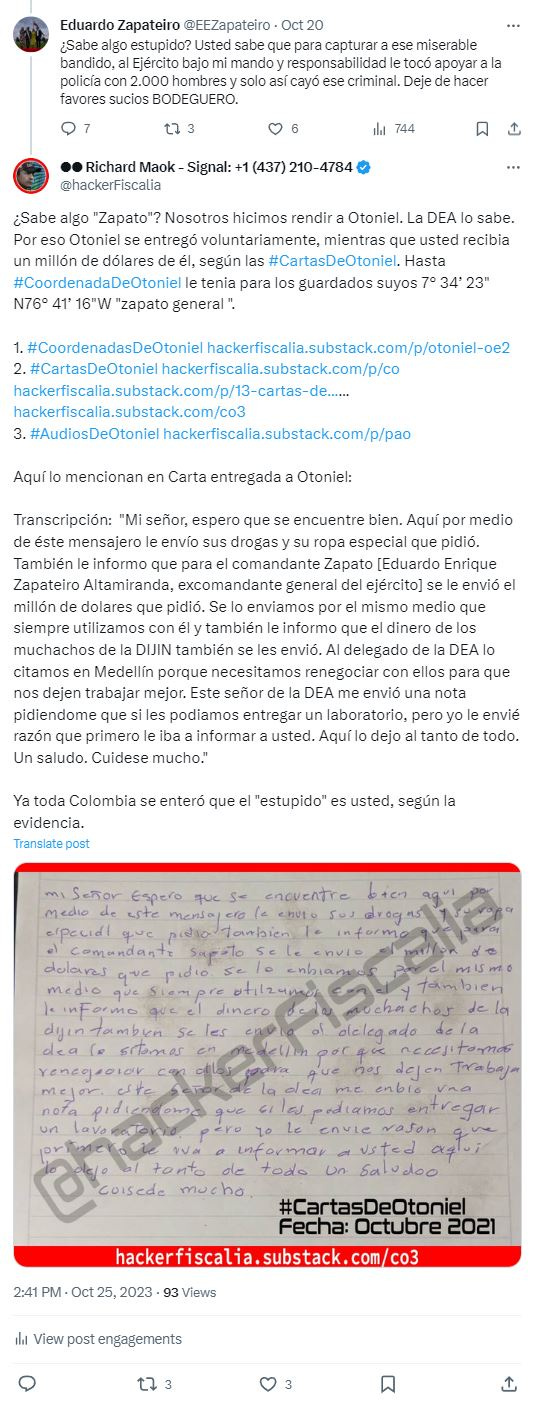 Eduardo Zapateiro @EEZapateiro · Oct 20
¿Sabe algo estupido? Usted sabe que para capturar a ese miserable
bandido, al Ejército bajo mi mando y responsabilidad le tocó apoyar a la
policía con 2.000 hombres y solo así cayó ese criminal. Deje de hacer
favores sucios BODEGUERO.
7 3 6 744
Richard Maok - Signal: +1 (437) 210-4784
@hackerFiscalia
¿Sabe algo "Zapato"? Nosotros hicimos rendir a Otoniel. La DEA lo sabe.
Por eso Otoniel se entregó voluntariamente, mientras que usted recibia
un millón de dólares de él, según las #CartasDeOtoniel. Hasta
#CoordenadaDeOtoniel le tenia para los guardados suyos 7° 34’ 23"
N76° 41’ 16"W "zapato general ".
1. #CoordenadasDeOtoniel hackerfiscalia.substack.com/p/otoniel-oe2
2. #CartasDeOtoniel hackerfiscalia.substack.com/p/co
hackerfiscalia.substack.com/p/13-cartas-de……
hackerfiscalia.substack.com/co3
3. #AudiosDeOtoniel hackerfiscalia.substack.com/p/pao
Aquí lo mencionan en Carta entregada a Otoniel:
Transcripción: "Mi señor, espero que se encuentre bien. Aquí por medio
de éste mensajero le envío sus drogas y su ropa especial que pidió.
También le informo que para el comandante Zapato [Eduardo Enrique
Zapateiro Altamiranda, excomandante general del ejército] se le envió el
millón de dolares que pidió. Se lo enviamos por el mismo medio que
siempre utilizamos con él y también le informo que el dinero de los
muchachos de la DIJIN también se les envió. Al delegado de la DEA lo
citamos en Medellín porque necesitamos renegociar con ellos para que
nos dejen trabajar mejor. Este señor de la DEA me envió una nota
pidiendome que si les podiamos entregar un laboratorio, pero yo le envié
razón que primero le iba a informar a usted. Aquí lo dejo al tanto de todo.
Un saludo. Cuidese mucho."
Ya toda Colombia se enteró que el "estupido" es usted, según la
evidencia.
Translate post
mi Señor Espero que se encuentre bien aqui por
medio de este mensajero le envio sus drogas y su ropa
especial que pidio tambien le informo que para
el comandante sapato se le envio el millon de
dolares que pidio. se lo enbiamos por el mismo
medio que siempre utilzamos con el y tambien
le informo que el dinero de los muchachos de la
dijin tambien se les envio al delegado de la
dea lo sitamos en medellin por que necesitamos
renegosiar con ellos para que nos dejen Trabaja
mejor. este señor de la dea me enbio una
nota pidiendome que si les podiamos entregar
un lavoratorio. pero yo le envie rason que
primero le iva a informar a usted aqui
lo dejo al tanto de todo un saludoo
cuisede mucho.
@hackerfiscalia
#CartasDeOtoniel
Fecha: Octubre 2021
hackerfiscalia.substack.com/co3
2:41 PM · Oct 25, 2023 · 93 Views
View post engagements
3 3